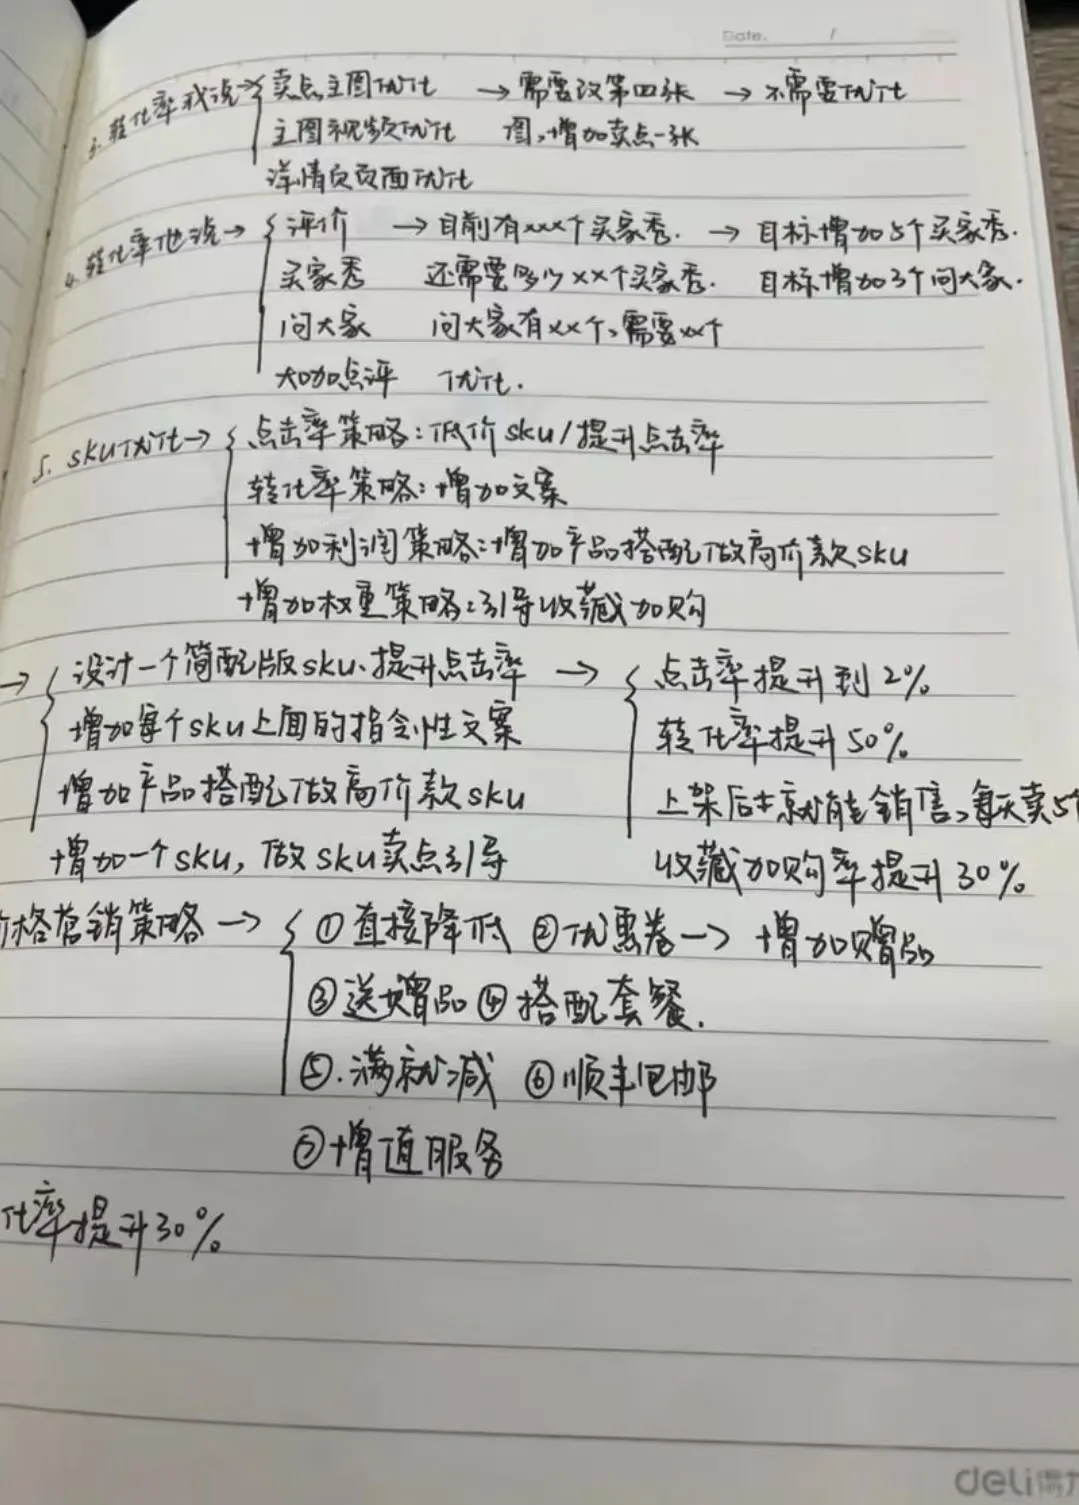 Date. /
3. 转化率我说→{ 卖点主图优化 → 需要改第四张 → 不需要优化
主图视频优化 图,增加卖点一张
详情页页面优化
4. 转化率他说→{ 评价 → 目前有xxx个买家秀. → 目标增加5个买家秀.
买家秀 还需要多少xx个买家秀. 目标增加3个问大家.
问大家 问大家有xx个,需要xx个
大咖点评 优化.
5. sku优化→{ 点击率策略:低价sku/提升点击率
转化率策略:增加文案
增加利润策略:增加产品搭配做高价款sku
增加权重策略:引导收藏加购
→{ 设计一个简配版sku、提升点击率 → { 点击率提升到2%
增加每个sku上面的指令性文案 转化率提升50%
增加产品搭配做高价款sku 上架后就能销售,每天卖5
增加一个sku,做sku卖点引导 收藏加购率提升30%
价格营销策略→{ ①直接降低 ②优惠卷→ 增加赠品
③送赠品 ④搭配套餐.
⑤.满就减 ⑥顺丰包邮
⑦增值服务
化率提升30%
deli得力